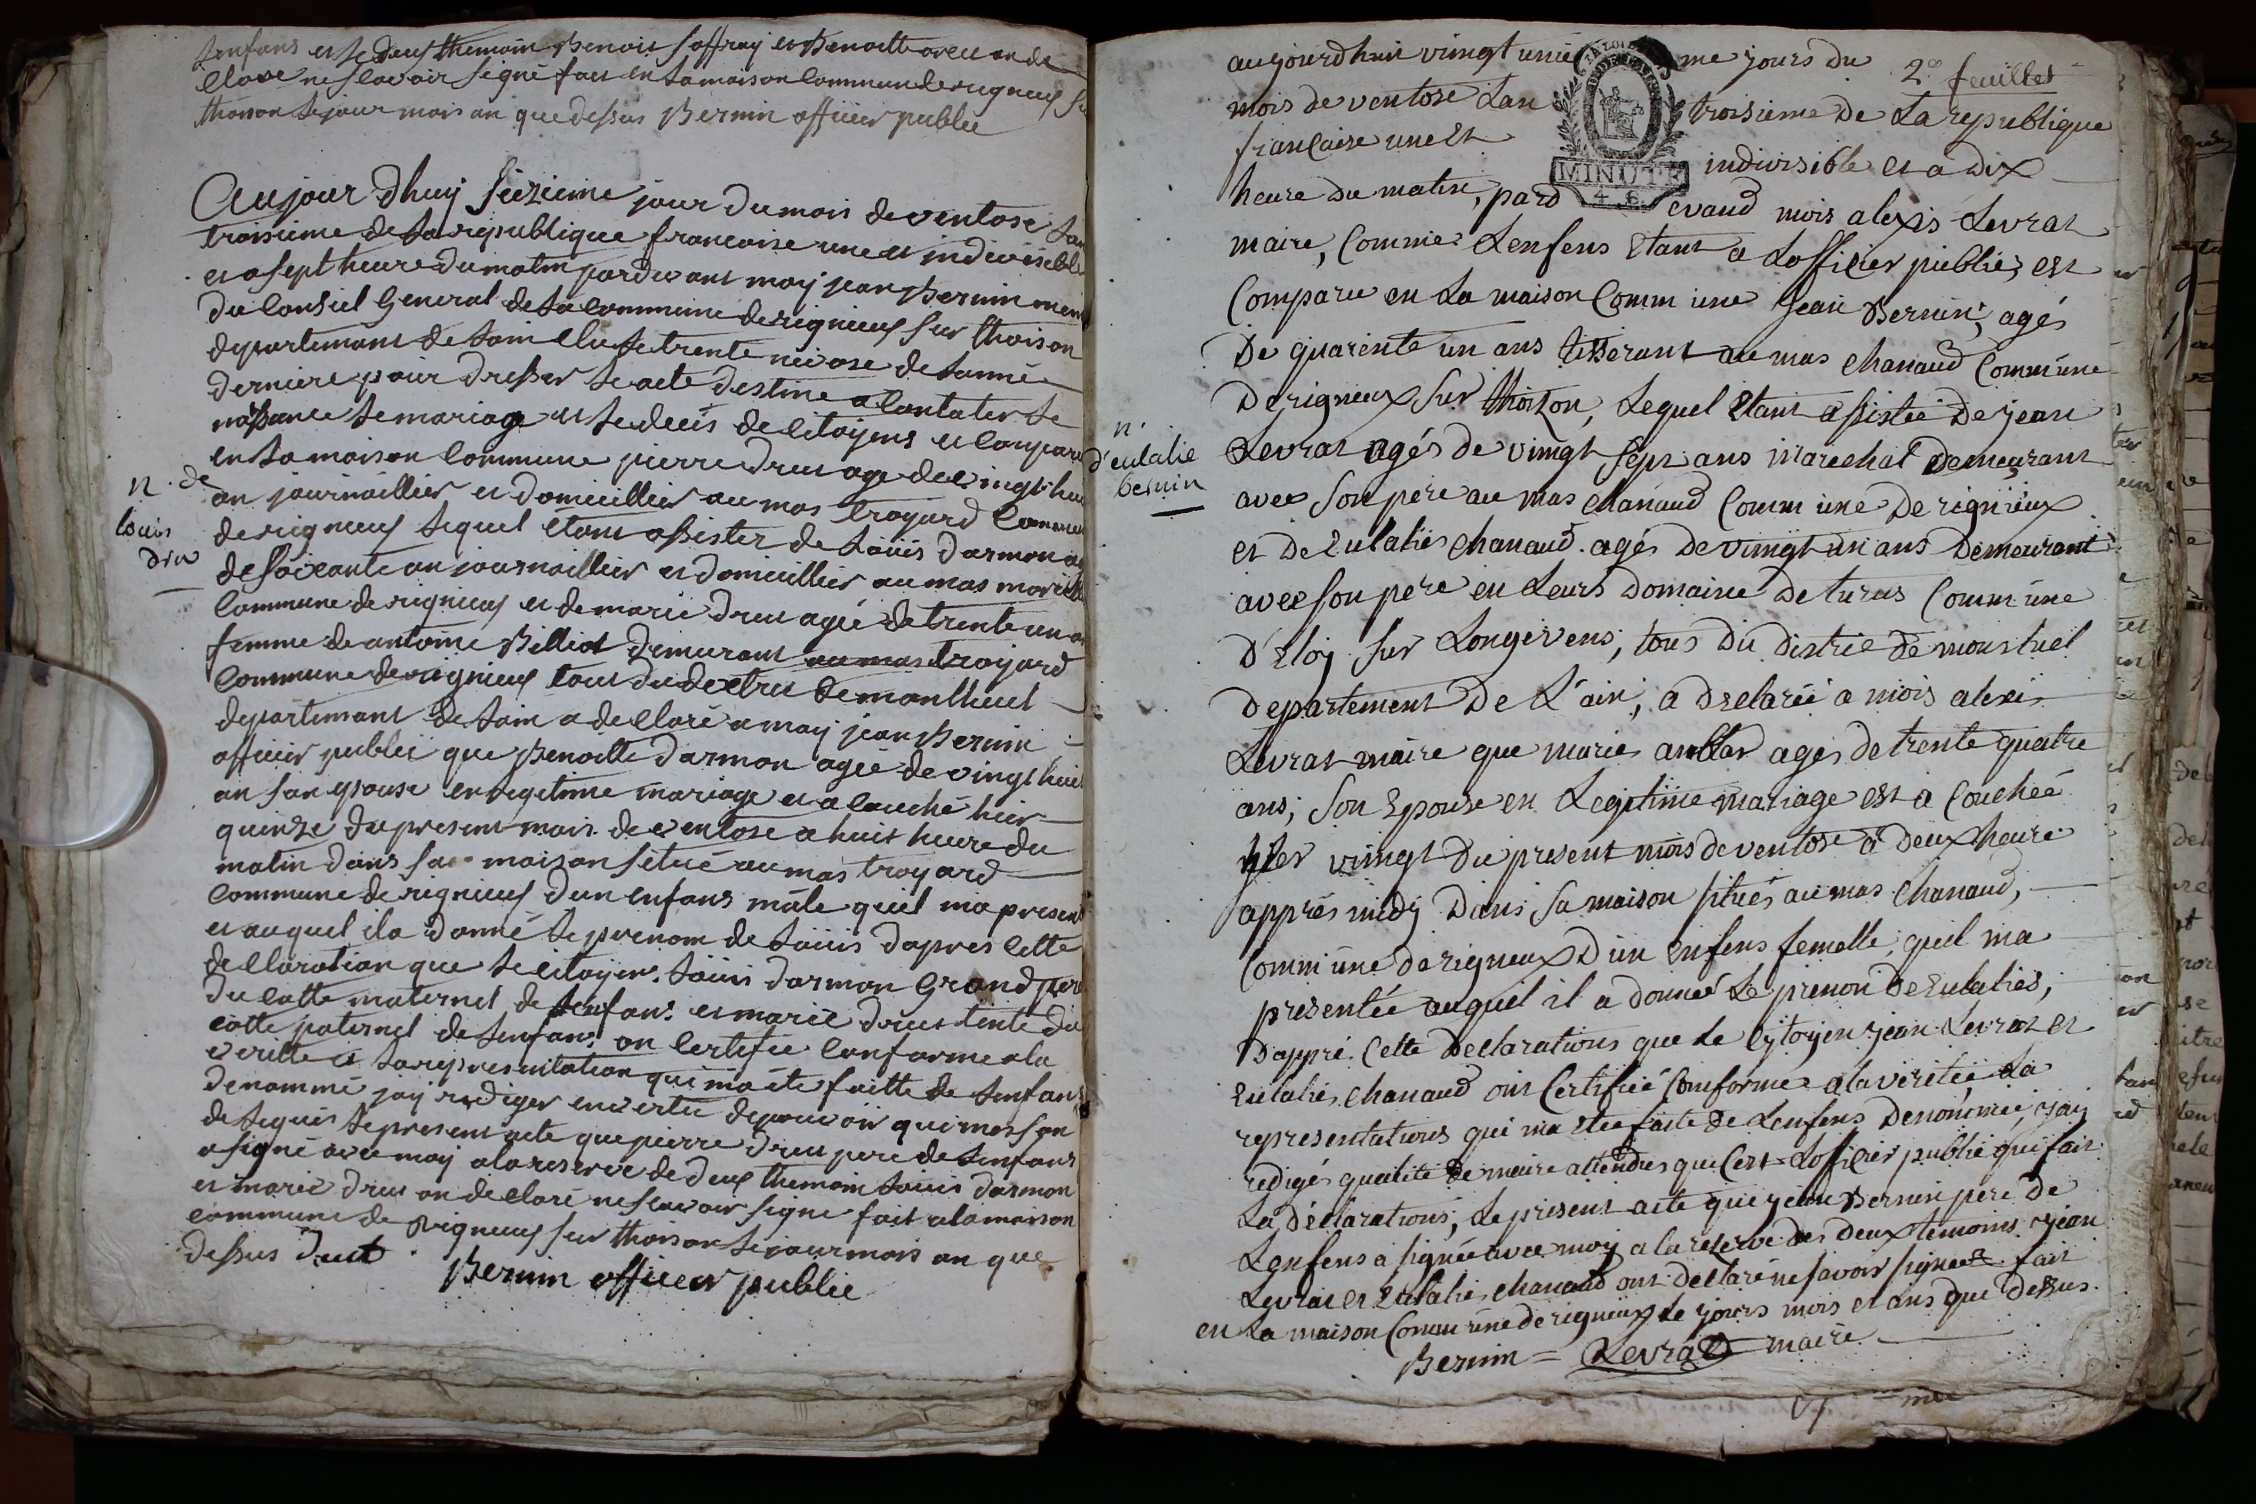 Lenfans et le deux themoin Benoit Joffray et Benoitte aveu on de
Clare ne scavoir signé fait en la maison Commune de rigneux Su
thoison le jour mois an que dessus Bernin officier public
Aujour dhuy seizieme jour du mois de ventose Lan
troisieme de la republique francaise une et indivisible
et a sept heure du matin pardevant moy jean Bernin mem
du Conseil General de la Commune de rigneux Sur thoison
departemant de Lain elu le trente nivose de Lanné
derniere pour dresser le acte destine a Contater le
naissance le mariage et le deces de Citoyens et Compare
en la maison Commune pierre dreu age de vingt huit
an journaillier et domicillier au mas troyard Commune
de rigneux lequel etant assister de Loüis darmon a
de soixante an journaillier et domicillier au mas
Commune de rigneux et de marie dreu agée de trente un an
femme de antoine Billiot demeurant au mas troyard
Commune de rigneux tous du dextrict de montluel
departemant de Lain a declaré a moy jean Bernin
officier public que Benoitte darmon agée de vingt huit
an son epouse en legitime mariage et a Couché hier
quinze du present mois de ventose a huit heure du
matin dans sa maison situé au mas troyard
Commune de rigneux dun enfans mâle quil ma present
et auquel il a donné le prenom de Loüis dapres Cette
declaration que le citoyen Loüis darmon Grand pere
du Cotte maternel de Lenfans et marie dreu tente du
cotte paternel de Lenfans on Certifie Conforme a la
veritte a la representation qui ma ete faitte de Lenfans
denommé jay rediger en vertu de pouvoir qui me son
delegués le present acte que pierre dreu pere de Lenfans
a signé avec moy a la reserve de deux themoin Louis darmon
et marie dreu on de Claré ne scavoir signe fait a la maison
commune de Rigneux sur thoison le jour mois an que
dessus
Bernin officier public
n. de
louis
dru
2e feuillet
aujourdhuit vingt unie me jours du
mois de ventose Lan troisieme de La republique
francaise une Et indivisible et a dix
MINUTE
heure du matin, pard evand mois alexis Levrat
maire, Comme Lenfens Etant a Lofficier public, est
Comparu en La maison Comm une Jean Bernin, agés
De quarente un ans tisserant au mas chanaud Commune
De rigneux sur thoizon, Lequel Etant assistée De jean
Levrat agés de vingt sept ans marechal Demeurant
avec son pere au mas chanaud Comm une De rigneux
et De Eulalie chanaud agés De vingt un ans Demeurant
avec son pere en Leurs Domaine De turas Comm une
D'Eloy sur Longevens, tous du district De montluel
Departement De L'ain, a declarée a mois alexi
Levrat maire que marie amblar ages de trente quatre
ans, son Epouse en Legitime mariage est a Couchée
hier vingt du present mois de ventose a deux heure
apprés midy Dans sa maison situés au mas Chanaud,
Comm une de rigneux D'un enfens femelle, quil ma
presentée auquel il a donneé Le prenon De Eulalies,
D'appré Cette Declarations que Le Cytoyen jean Levrat et
Eulalie, chanaud ont Certifié Conforme a la veritée La
representations qui ma Etee faite de Lenfens Denommée, jay
redigés qualite De maire attendus que Cest Lofficier public qui fait
La déclarations, Le present acte que jean Bernin pere De
Lenfens a signée avec moy a la reserve des deux temoins jean
Levrat et Eulalie chanaud ont declaré ne savoir signer fait
en La maison Commune de rigneux le jours mois et ans que Dessus.
Bernin = Levrat maire
n.
d'eulalie
bernin